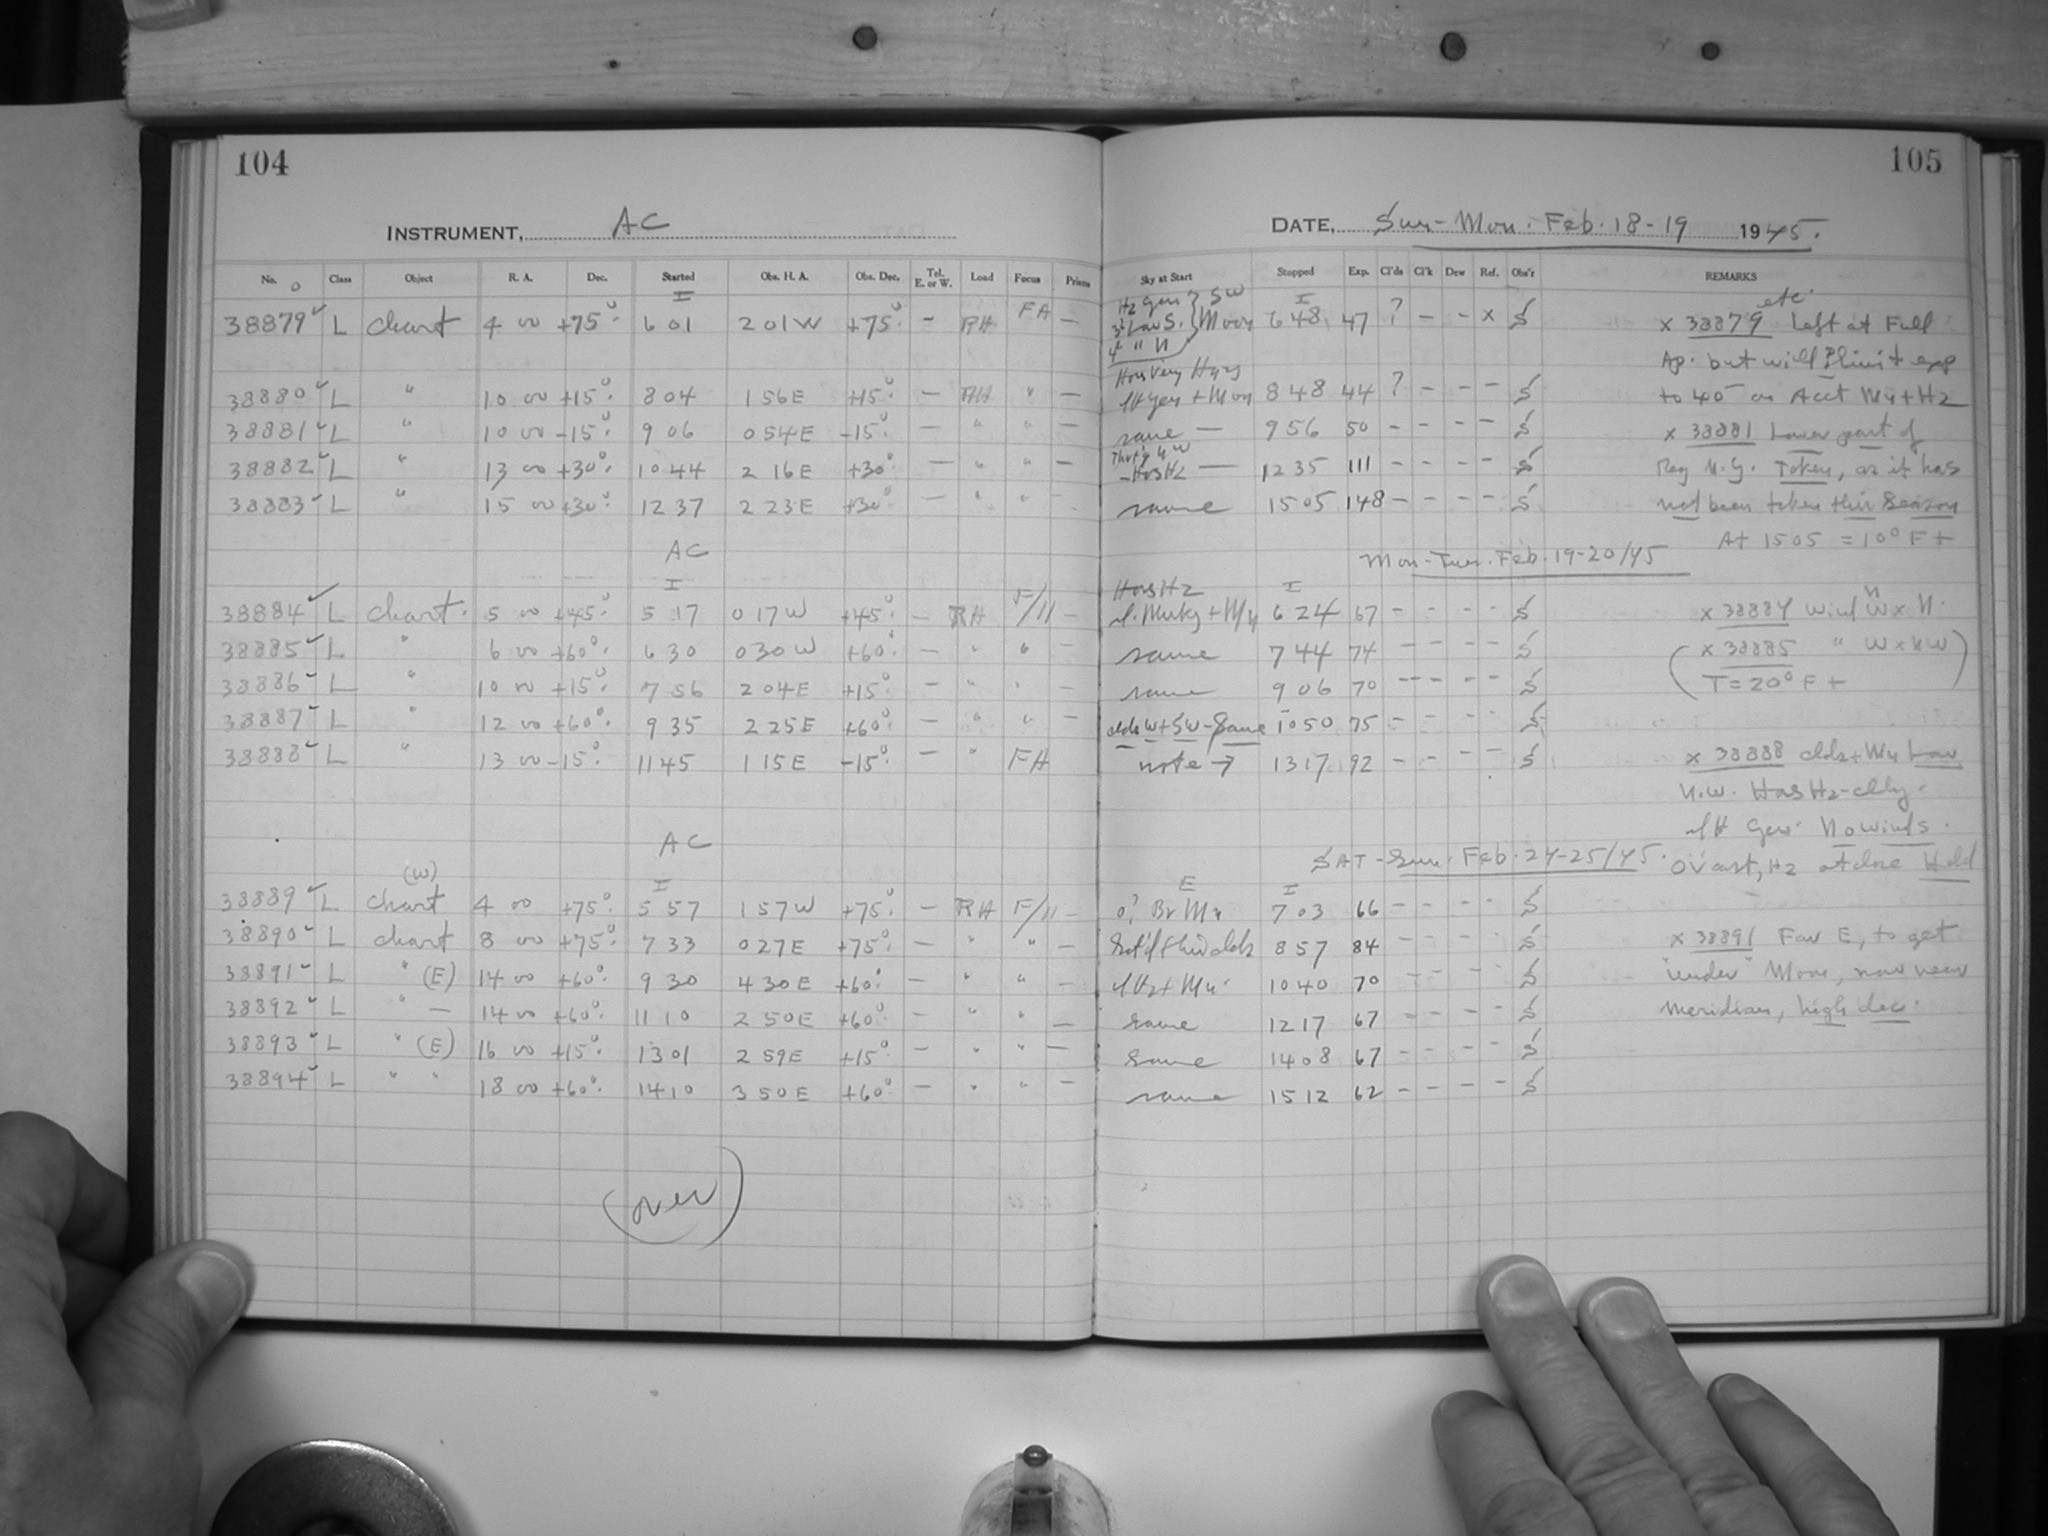 104
105
INSTRUMENT, AC
DATE, Sun-Mon. Feb. 18-19 1945.
No. Class Object R. A. Dec. Started Obs. H. A. Obs. Dec. Tel. E. or W. Load Focus Prisms Sky at Start Stopped Exp. Cl'ds Cl'k Dew Ref. Obs'r REMARKS
38879 L chart 4 00 +75° 6 01 2 01 W +75° - RH FA - Moon 6 48 47 ? - - x S x 38879 etc. Left at Full
Ap. but will limit exp
38880 L " 10 00 +15° 8 04 1 56 E +15° - RH " - 8 48 44 ? - - - S to 40 on Acct My + Hz
38881 L " 10 00 -15° 9 06 0 54 E -15° - " " - same - 9 56 50 - - - - S x 38881 Lower part of
38882 L " 13 00 +30° 10 44 2 16 E +30° - " " - 12 35 111 - - - - S Reg N.G. Taken, as it has
38883 L " 15 00 +30° 12 37 2 23 E +30° - " " - same 15 05 148 - - - - S not been taken this Season
At 1505 = 10° F +
AC
Mon-Tues. Feb. 19-20/45
38884 L chart. 5 00 +45° 5 17 0 17 W +45° - RH F/11 - 6 24 67 - - - - S x 38884 Wind W x N.
38885 L " 6 00 +60° 6 30 0 30 W +60° - " " - same 7 44 74 - - - - S x 38885 " W x NW
38886 L " 10 00 +15° 7 56 2 04 E +15° - " " - same 9 06 70 - - - - S T = 20° F +
38887 L " 12 00 +60° 9 35 2 25 E +60° - " " - clds W + SW - Same 10 50 75 - - - - S
38888 L " 13 00 -15° 11 45 1 15 E -15° - " FA note → 13 17 92 - - - - S x 38888 clds + My Low
N.W. Hor Hz - cldy.
Gen. No winds.
AC
SAT-Sun. Feb. 24-25/45.
Ov'cast, Hz at close Held
38889 L (W) chart 4 00 +75° 5 57 1 57 W +75° - RH F/11 - 7 03 66 - - - - S
38890 L chart 8 00 +75° 7 33 0 27 E +75° - " " - Scat'd thin clds 8 57 84 - - - - S x 38891 Far E, to get
38891 L " (E) 14 00 +60° 9 30 4 30 E +60° - " " - 10 40 70 - - - - S "under" Moon, now near
38892 L " - 14 00 +60° 11 10 2 50 E +60° - " " - same 12 17 67 - - - - S meridian, high dec.
38893 L " (E) 16 00 +15° 13 01 2 59 E +15° - " " - Same 14 08 67 - - - - S
38894 L " " 18 00 +60° 14 10 3 50 E +60° - " " - same 15 12 62 - - - - S
(over)